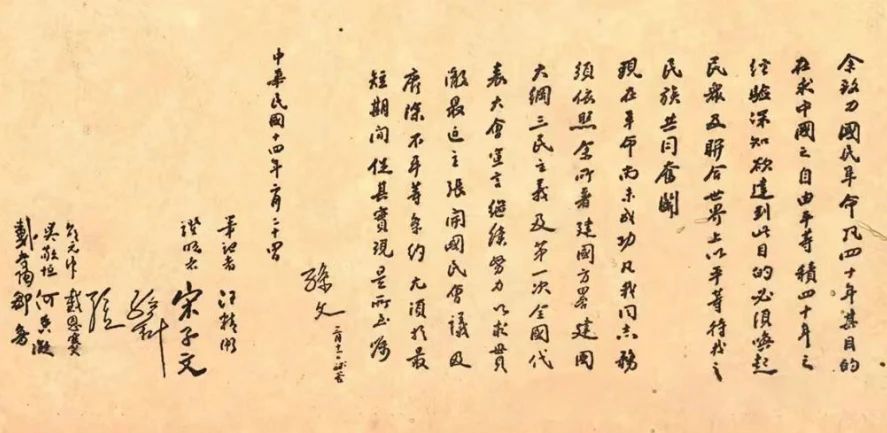 余致力國民革命凡四十年其目的
在求中國之自由平等積四十年之
經驗深知欲達到此目的必須喚起
民衆及聯合世界上以平等待我之
民族共同奮鬪
現在革命尚未成功凡我同志務
須依照余所著建國方略建國
大綱三民主義及第一次全國代
表大會宣言繼續努力以求貫
澈最近主張開國民會議及
廢除不平等條約尤須於最
短期間促其實現是所至囑
孫文
三月十一日補簽
中華民國十四年二月二十四日
筆記者 汪精衛
證明者 宋子文
孫科
孔祥熙
邵元冲 戴恩賽
吳敬恒 何香凝
戴季陶 鄒魯